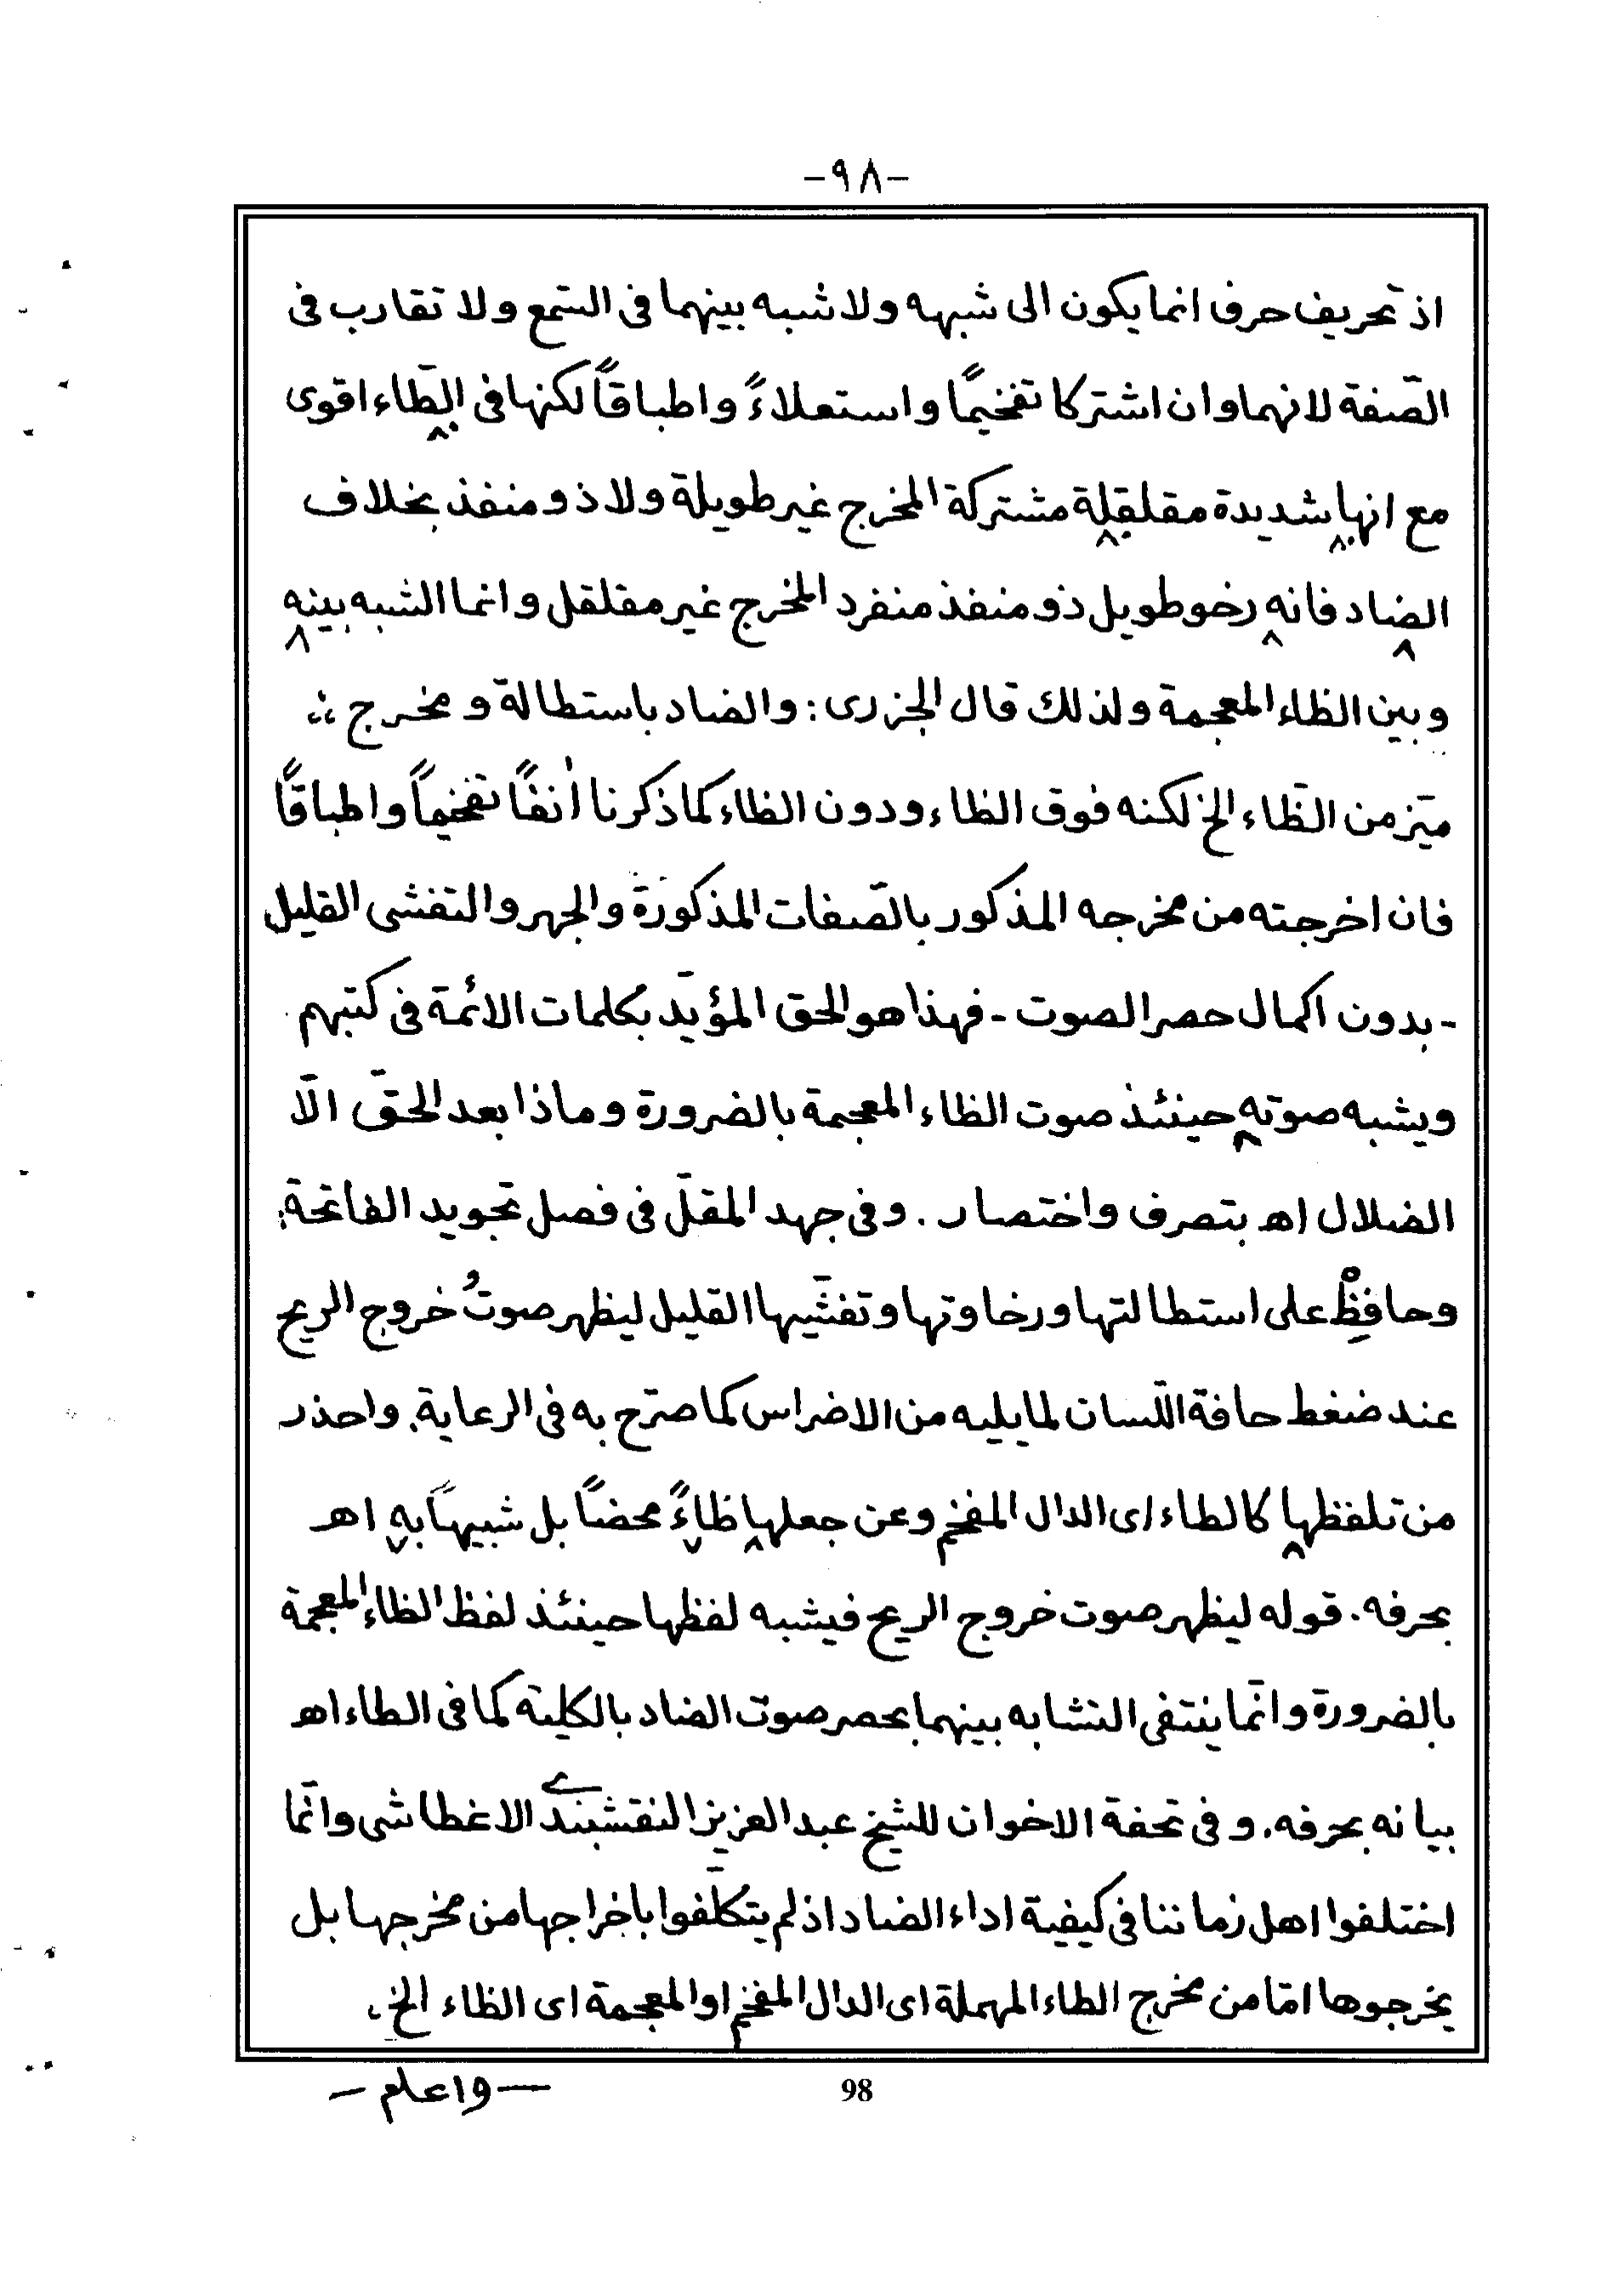 -٩٨-
اذ تحريف حرف انما يكون الى شبهه ولا شبه بينهما فى السّمع ولا تقارب فى
الصّفة لانهما وان اشتركا تفخيمًا واستعلاءً واطباقاً لكنها فى الطّاء اقوى
مع انها شديدة مقلقلة مشتركة المخرج غير طويلة ولا ذو منفذ بخلاف
الضاد فانه رخو طويل ذو منفذ منفرد المخرج غير مقلقل وانما الشبه بينه
وبين الظاء المعجمة ولذلك قال الجزرى: والضاد باستطالة و مخرج ؞
ميّز من الظّاء الخ لكنه فوق الظاء ودون الظاء كما ذكرنا اٰنفًا تفخيماً واطباقًا
فان اخرجته من مخرجه المذكور بالصّفات المذكورة والجهر والتفشى القليل
- بدون اكمال حصر الصوت - فهذا هو الحق المؤيّد بكلمات الائمة فى كتبهم
ويشبه صوته حينئذ صوت الظاء المعجمة بالضرورة وماذا بعد الحقّ الّا
الضلال اهـ بتصرف واختصار. وفى جهد المقلّ فى فصل تجويد الفاتحة:
وحافِظْ على استطالتها ورخاوتها وتفشّيها القليل ليظهر صوتُ خروج الريح
عند ضغط حافة اللّسان لما يليه من الاضراس كما صرّح به فى الرعاية. واحذر
من تلفظها كالطاء اى الدال المفخم وعن جعلها ظاءً محضاً بل شبيهاً به اهـ
بحرفه. قوله ليظهر صوت خروج الريح فيشبه لفظها حينئذ لفظ الظاء المعجمة
بالضرورة وانّما ينتفى التشابه بينهما بحصر صوت الضاد بالكلية كما فى الطاء اهـ
بيانه بحرفه. و فى تحفة الاخوان للشيخ عبد العزيز النقشبندے الاغطاشى وانّما
اختلفوا اهل زماننا فى كيفية اداء الضاد اذ لم يتكلّفوا باخراجها من مخرجها بل
يخرجوها امّا من مخرج الطاء المهملة اى الدال المفخم او المعجمة اى الظاء الخ.
98
— واعلم —